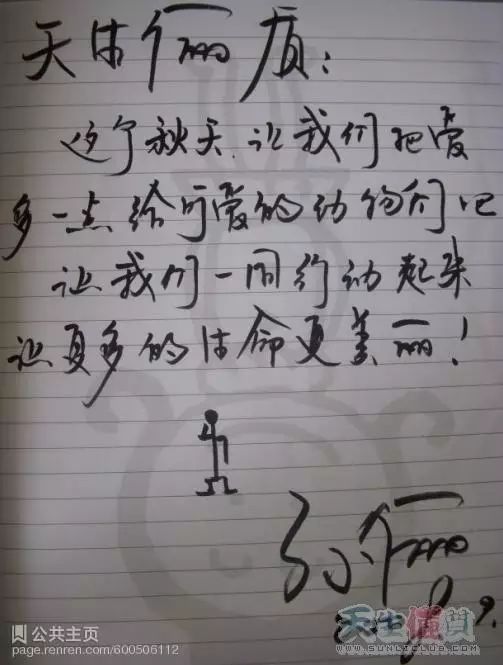 天生俪质：
这个秋天，让我们把爱
多一点给可爱的动物们吧
让我们一同行动起来
让更多的生命更美丽！
孙俪
9.
天生俪质
WWW.SUNLICLUB.COM
公共主页
page.renren.com/600506112